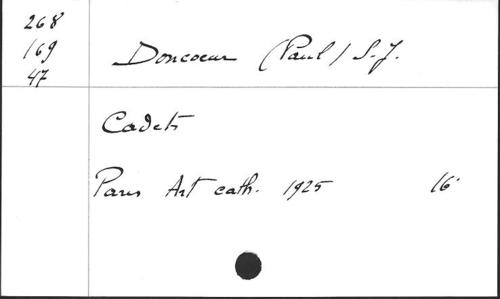 268
169
47
Doncoeur (Paul) S.J.
Cadets
Paris Art cath. 1925 16°